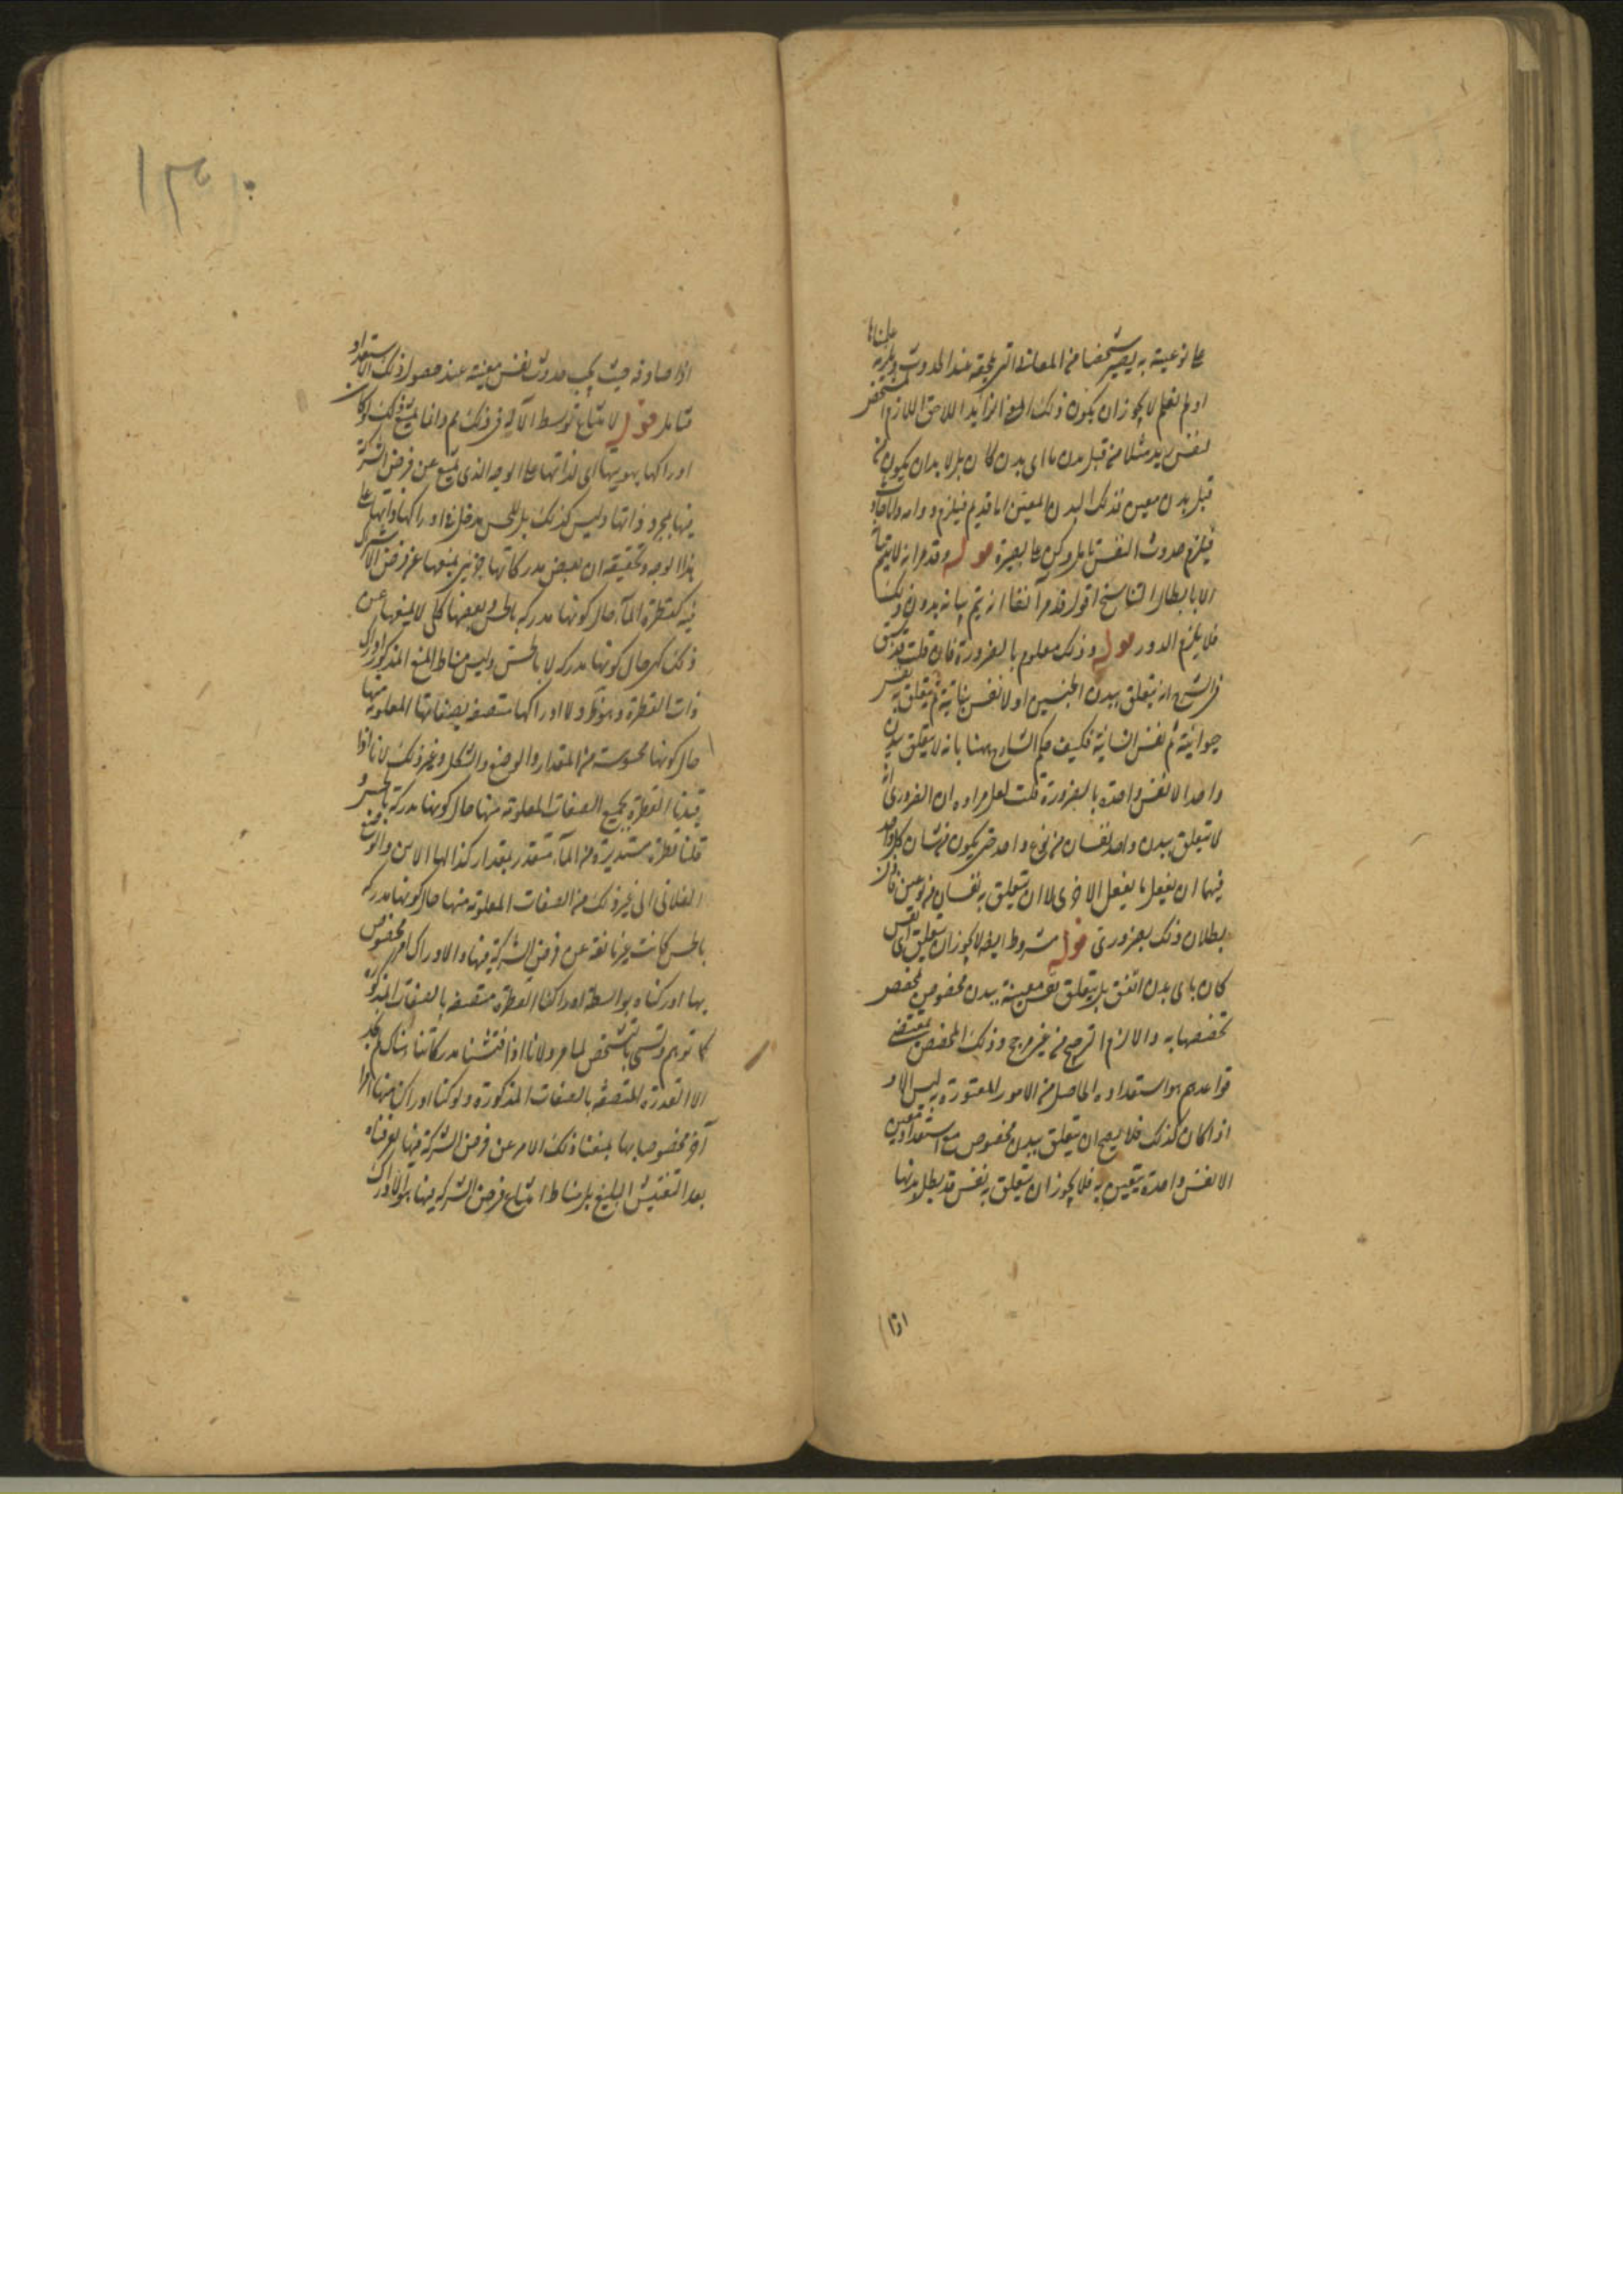 على نوعيته به يصير شخصا من المعانى التى تلحقه عند الحدوث ويلزمه علمناها
او لم نعلم لا يجوز ان يكون ذلك المعنى الزايد اللاحق اللازم المشخص
لنفس زيد مثلا من قبل بدن ما اى بدن كان بل لا بد ان يكون من
قبل بدن معين فذلك البدن المعين اما قديم فيلزم دوامه واما حادث
فيلزم حدوث النفس تامل وكن على بصيرة قوله وقد مر انه لا يتم
الا بابطال التناسخ اقول قد مر آنفا انه يتم بيانه بدون ذلك
فلا يلزم الدور قوله وذلك معلوم بالضرورة فان قلت قد سبق
فى الشرح انه يتعلق ببدن الجنين اولا نفس نباتية ثم يتعلق به نفس
حيوانية ثم نفس انسانية فكيف حكم الشارح ههنا بانه لا يتعلق ببدن
واحد الا نفس واحدة بالضرورة قلت لعل مراده ان الضرورى انه
لا يتعلق ببدن واحد نفسان من نوع واحد حتى يكون من شان كل واحد
فيهما ان يفعل ما يفعل الاخرى لا ان يتعلق به نفسان من نوعين فان
بطلان ذلك بضرورى قوله مشروط ايضا لا يجوز ان يتعلق اى نفس
كان باى بدن اتفق بل يتعلق نفس معينة ببدن مخصوص لمخصص
تخصصها به والا لزم الترجيح من غير مرجح وذلك المخصص بمقتضى
قواعدهم هو استعداده الحاصل من الامور المعتورة به ليس الا و
اذا كان كذلك فلا يصح ان يتعلق ببدن مخصوص مع استعداد معين
الا نفس واحدة يتعين به فلا يجوز ان يتعلق به نفس قد بطل بدنها
اذا
١٣٠
اذا صادفه حيث يجب حدوث نفس معينة عند حصول ذلك الاستعداد
فتامل قوله لامتناع توسط الآلة فى ذلك مم وانما يمتنع ذلك لو كان
ادراكها بهويتها اى لذاتها على الوجه الذى يمنع عن فرض الشركة
فيها بمجرد ذاتها وليس كذلك بل للحس مدخل فى ادراكها ذاتها على
هذا الوجه وتحقيقه ان بعض مدركاتها جزئى يمنعها عن فرض الاشتراك
فيه كقطرة الماء حال كونها مدركة بالحس وبعضها كلى لا يمنعها عن
ذلك كهى حال كونها مدركة لا بالحس وليس مناط المنع المذكور ادراك
ذات القطرة وهو ظ ولا ادراكها متصفة بصفاتها المعلومة منها
حال كونها محسوسة من المقدار والوضع والشكل وغير ذلك لانا اذا
قيدنا القطرة بجميع الصفات المعلومة منها حال كونها مدركة بالحس و
قلنا قطرة مستديرة من الماء متقدر بمقدار كذا لها الاين والوضع
الفلانى الى غير ذلك من الصفات المعلومة منها حال كونها مدركة
بالحس كانت غير مانعة عن فرض الشركة فيها ولا ادراك امر مخصوص
بها ادركناه بواسطة ادراك القطرة متصفة بالصفات المذكورة
كما توهم وتسمى بالتشخص لما مر ولانا اذا فتشنا مدركاتنا هناك لم نجد
الا القطرة المتصفة بالصفات المذكورة ولو كنا ادراك منها امرا
آخر مخصوصا بها يمنعنا ذلك الامر عن فرض الشركة فيها لعرفناه
بعد التفتيش البليغ بل مناط امتناع فرض الشركة فيها هو الادراك